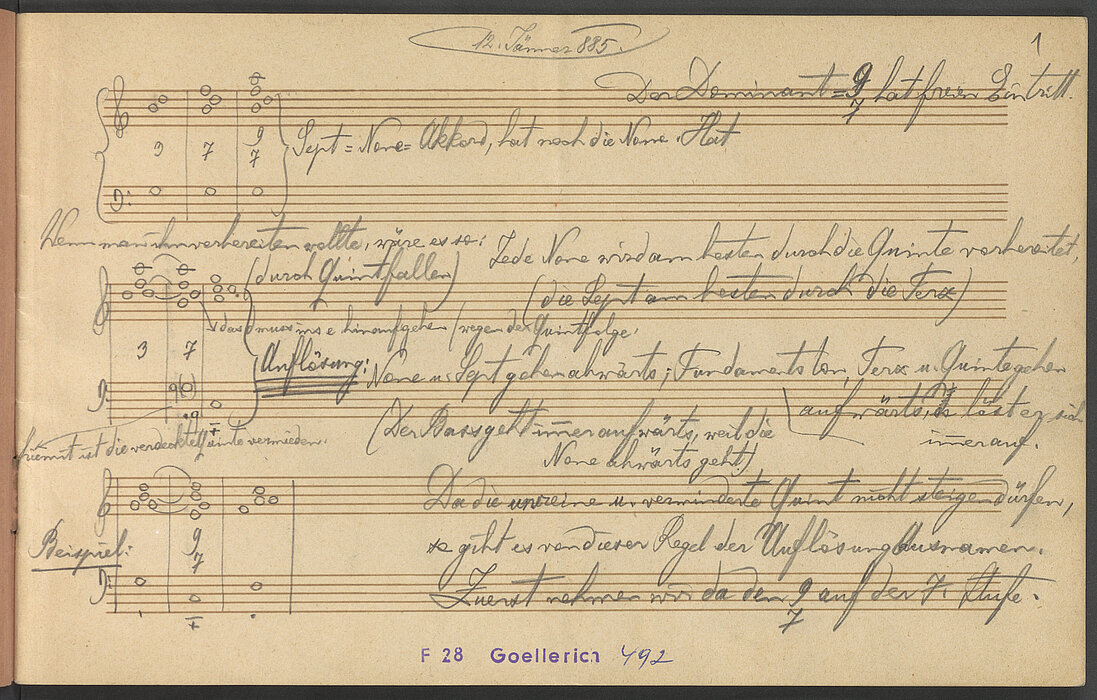 12. Jänner 885.
1
Der Dominant = 9/7 hat freien Eintritt.
Sept = None = Akkord, hat noch die None. Hat
9 7 9/7
Wenn man ihn vorbereiten wollte, wäre es so:
Jede None wird am besten durch die Quinte vorbereitet,
(durch Quintfallen)
(die Sept am besten durch die Terz)
das d muss ins e hinaufgehen (wegen der Quintfolge.
3 7
9
Auflösung: None u. Sept gehen abwärts; Fundamentston, Terz u. Quinte gehen
aufwärts. So löst er sich
immer auf.
(Der Bass geht immer aufwärts, weil die
None abwärts geht)
hiemit ist die verdeckte Quinte vermieden.
Da die unreine u. verminderte Quint nicht steigen dürfen,
Beispiel:
9/7
so gibt es von dieser Regel der Auflösung Ausnamen.
Zuerst nehmen wir da den 9/7 auf der 7. Stufe.
F 28 Goellerich 492